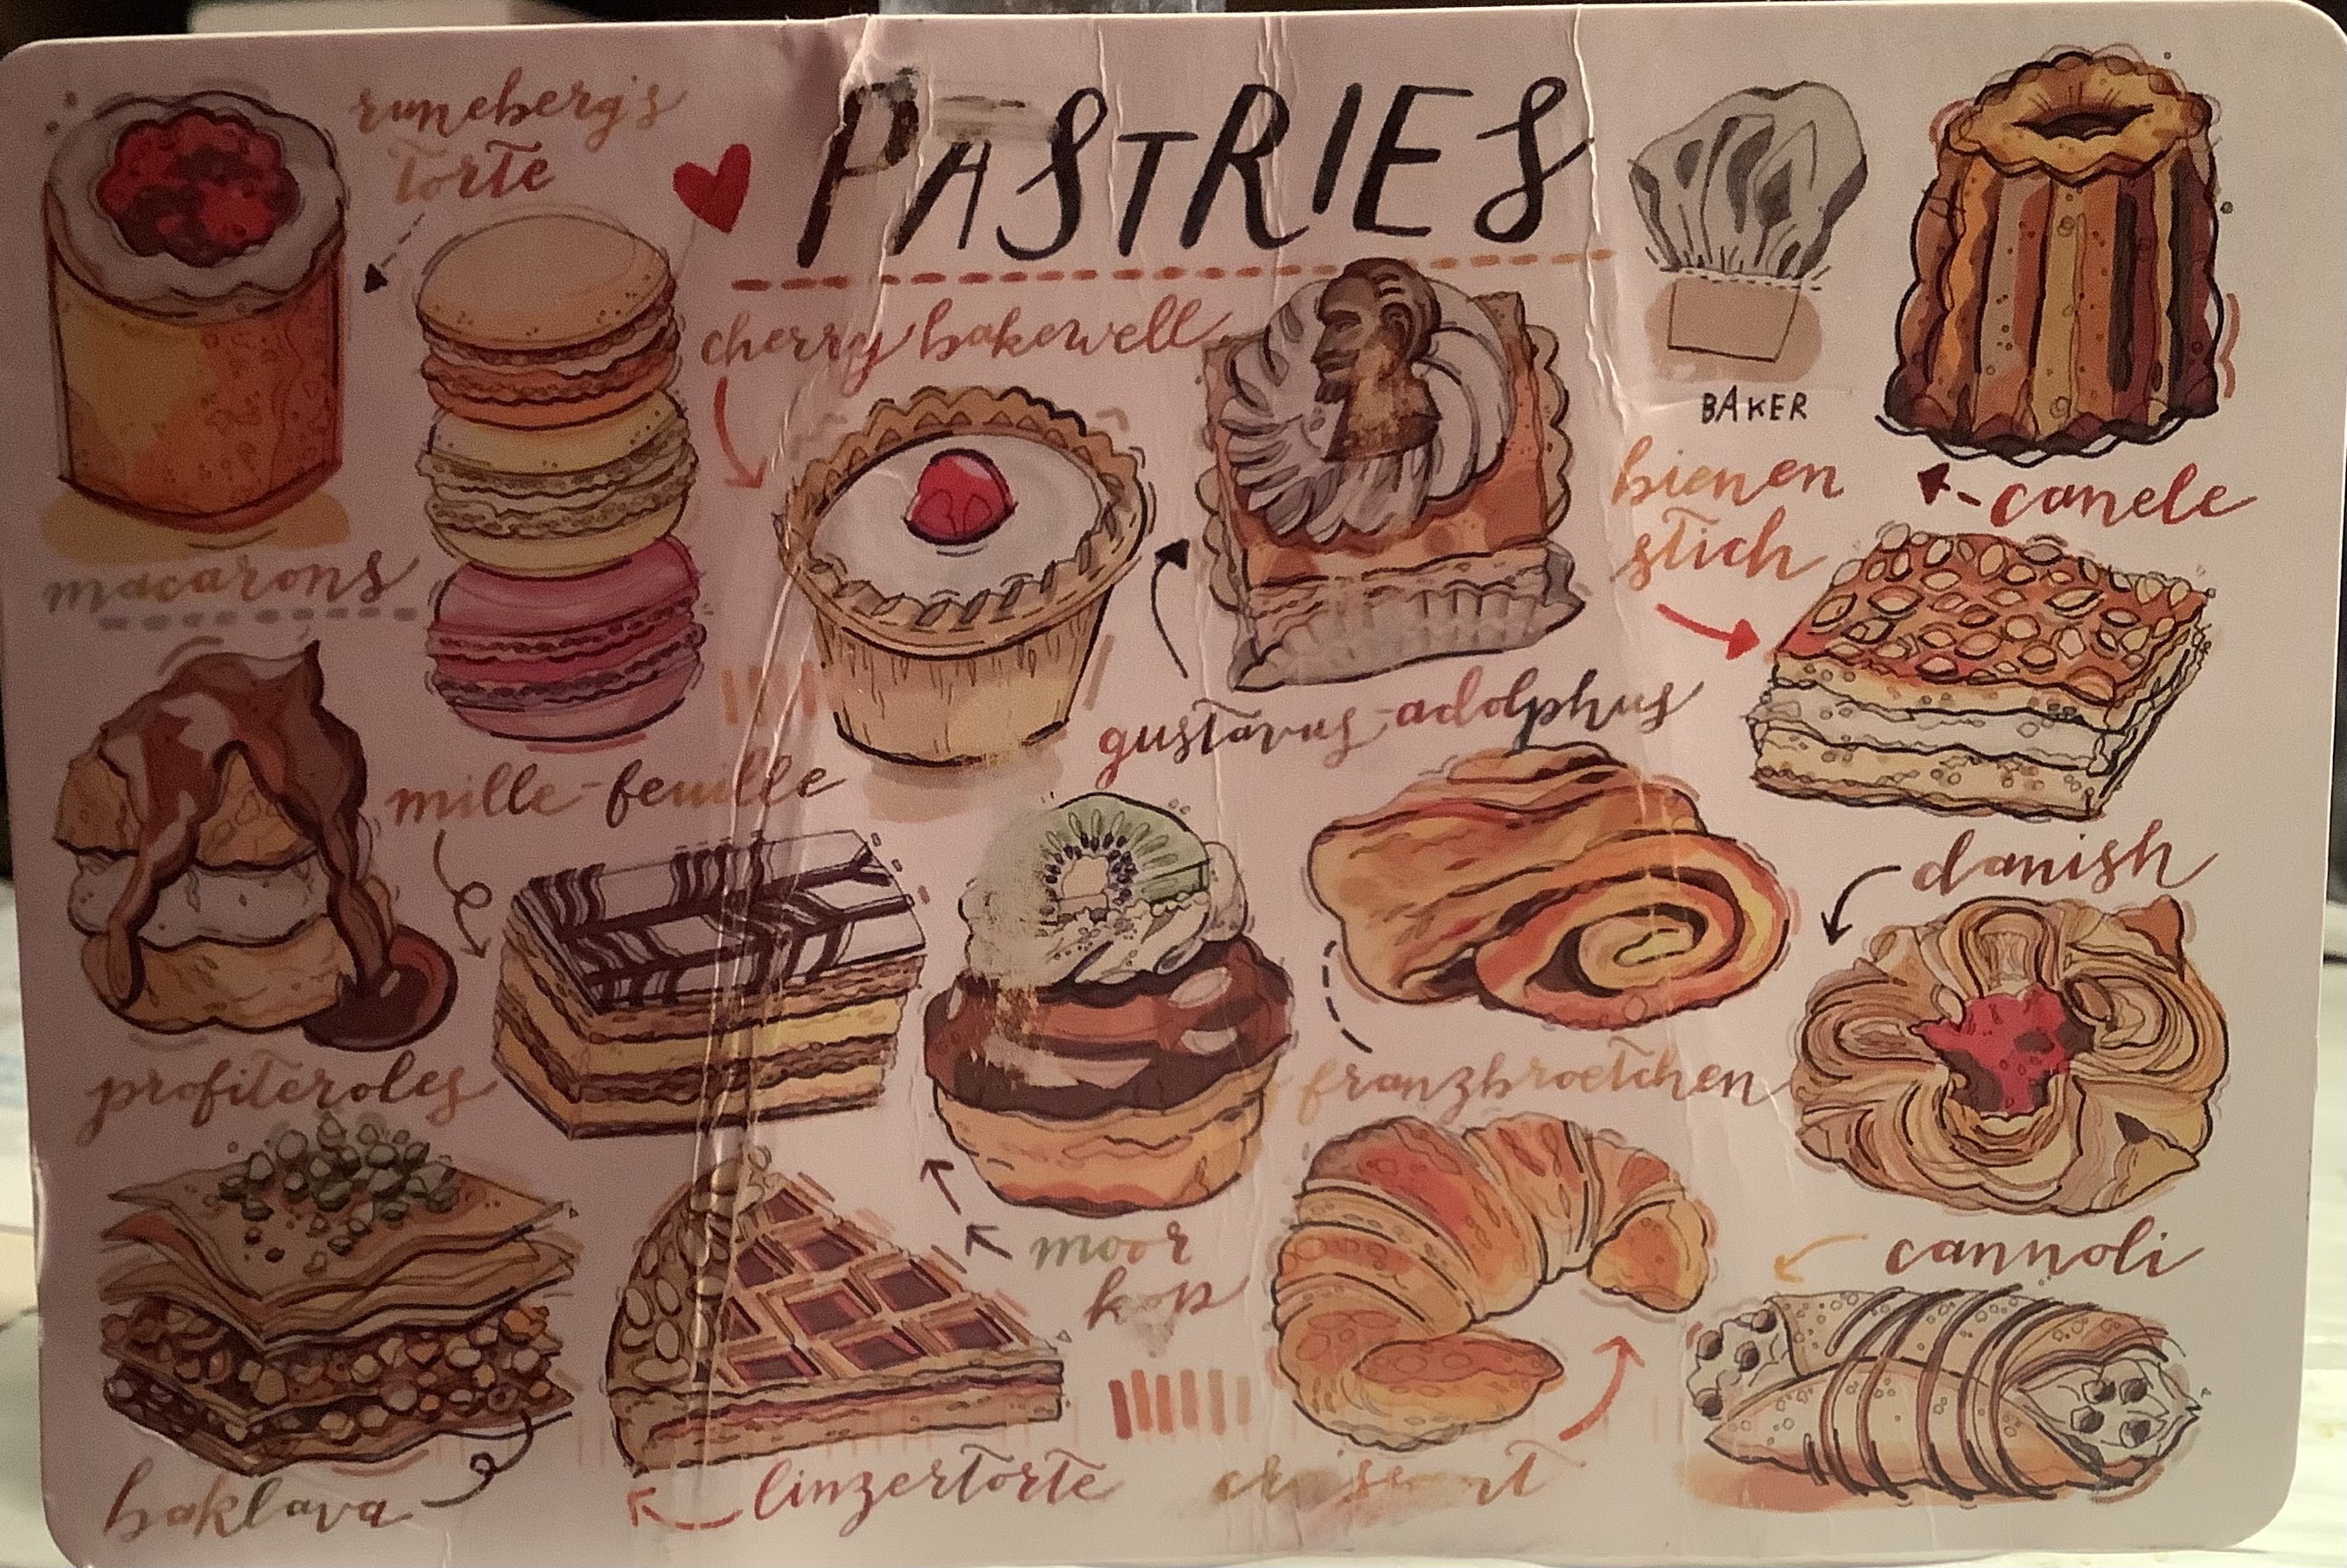 PASTRIES
runeberg's
torte
cherry bakewell
BAKER
bienen
stich
canele
macarons
gustavus-adolphus
mille-feuille
danish
profiteroles
franzbroetchen
moor
kop
cannoli
baklava
linzertorte
croissant